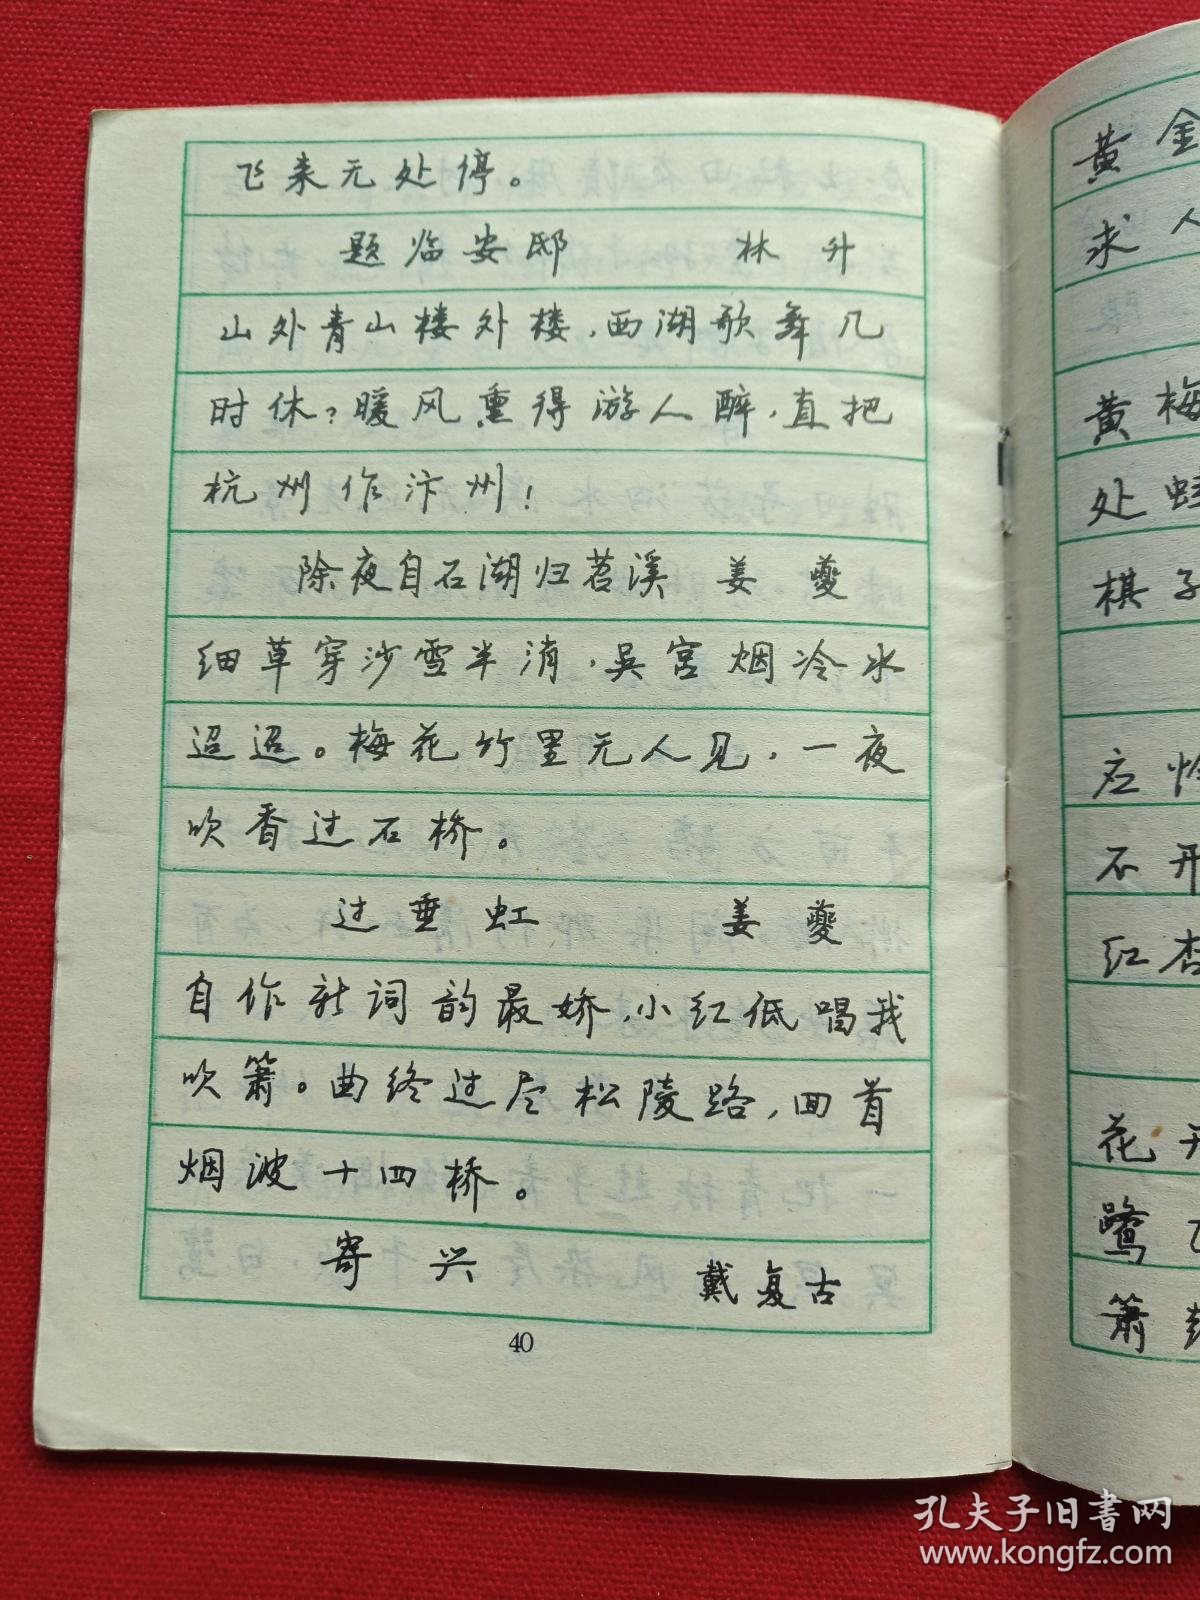 飞来无处停。
题临安邸 林升
山外青山楼外楼，西湖歌舞几
时休？暖风熏得游人醉，直把
杭州作汴州！
除夜自石湖归苕溪 姜夔
细草穿沙雪半消，吴宫烟冷水
迢迢。梅花竹里无人见，一夜
吹香过石桥。
过垂虹 姜夔
自作新词韵最娇，小红低唱我
吹箫。曲终过尽松陵路，回首
烟波十四桥。
寄兴 戴复古
40
黄金
求人
黄梅
处蛙
棋子
应怜
不开
红杏
花开
鹭
箫
孔夫子旧书网
www.kongfz.com